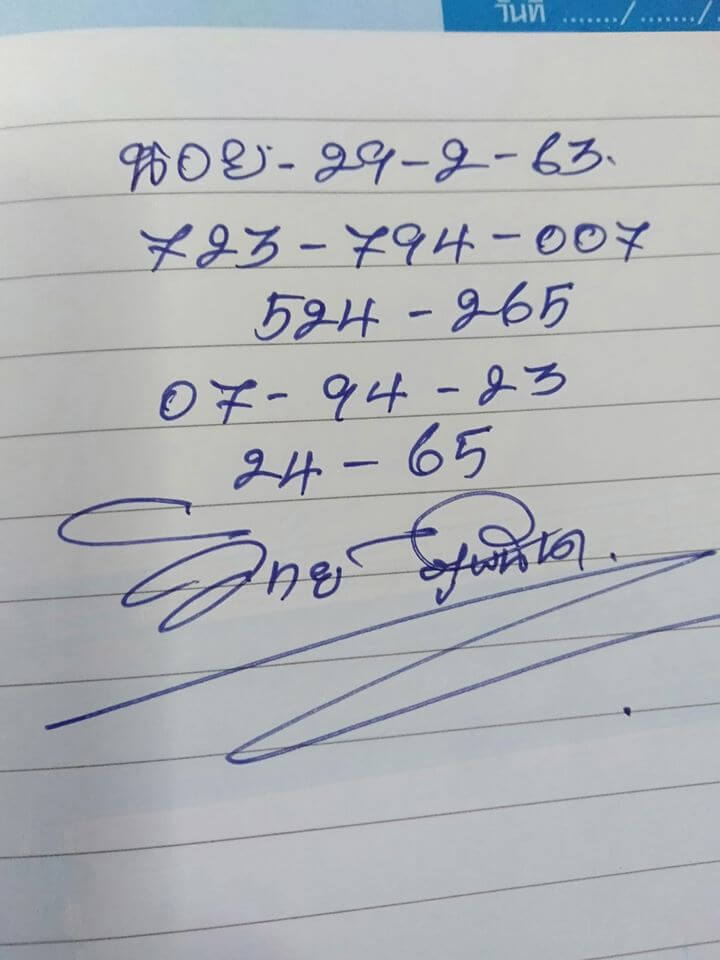 วันที่ ......./......./
น้อย - 29 - 2 - 63.
723 - 794 - 007
524 - 265
07 - 94 - 23
24 - 65